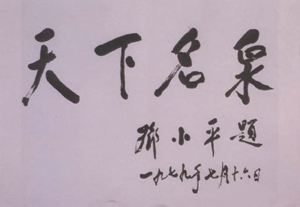 天下名泉
邓小平题
一九七九年七月十六日